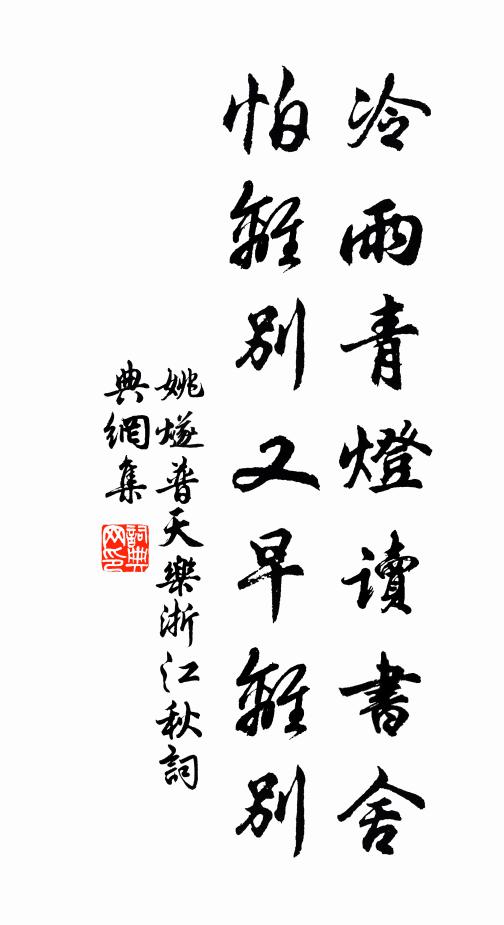 冷雨青燈讀書舍
怕離別又早離別
姚燧普天樂浙江秋詞
典網集
詞典
網印